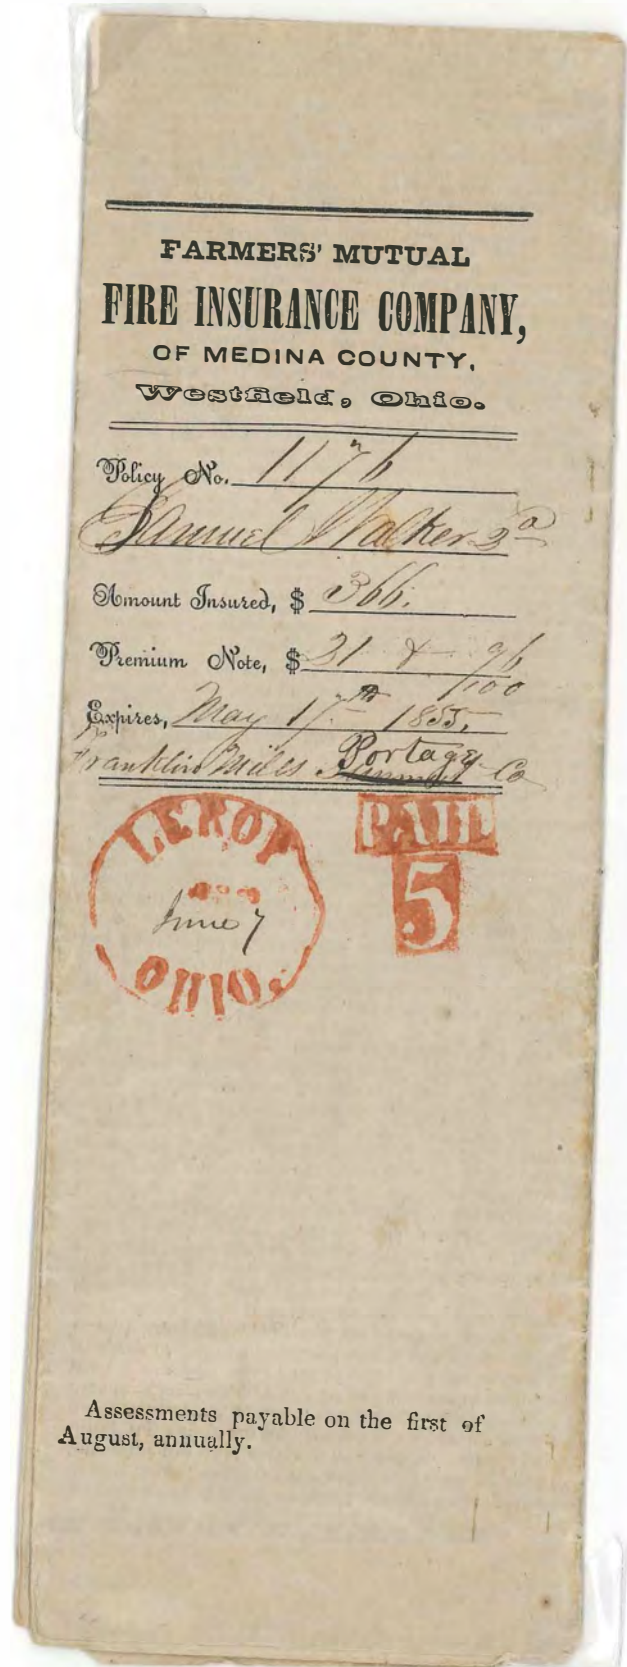 FARMERS' MUTUAL
FIRE INSURANCE COMPANY,
OF MEDINA COUNTY,
Westfield, Ohio.
Policy No. 1176
Samuel Walker 2d
Amount Insured, $ 366.
Premium Note, $ 31 & 96/100
Expires, May 17th 1855.
Franklin Mills Portage Co
LEROY
June 7
OHIO.
PAID
5
Assessments payable on the first of
August, annually.